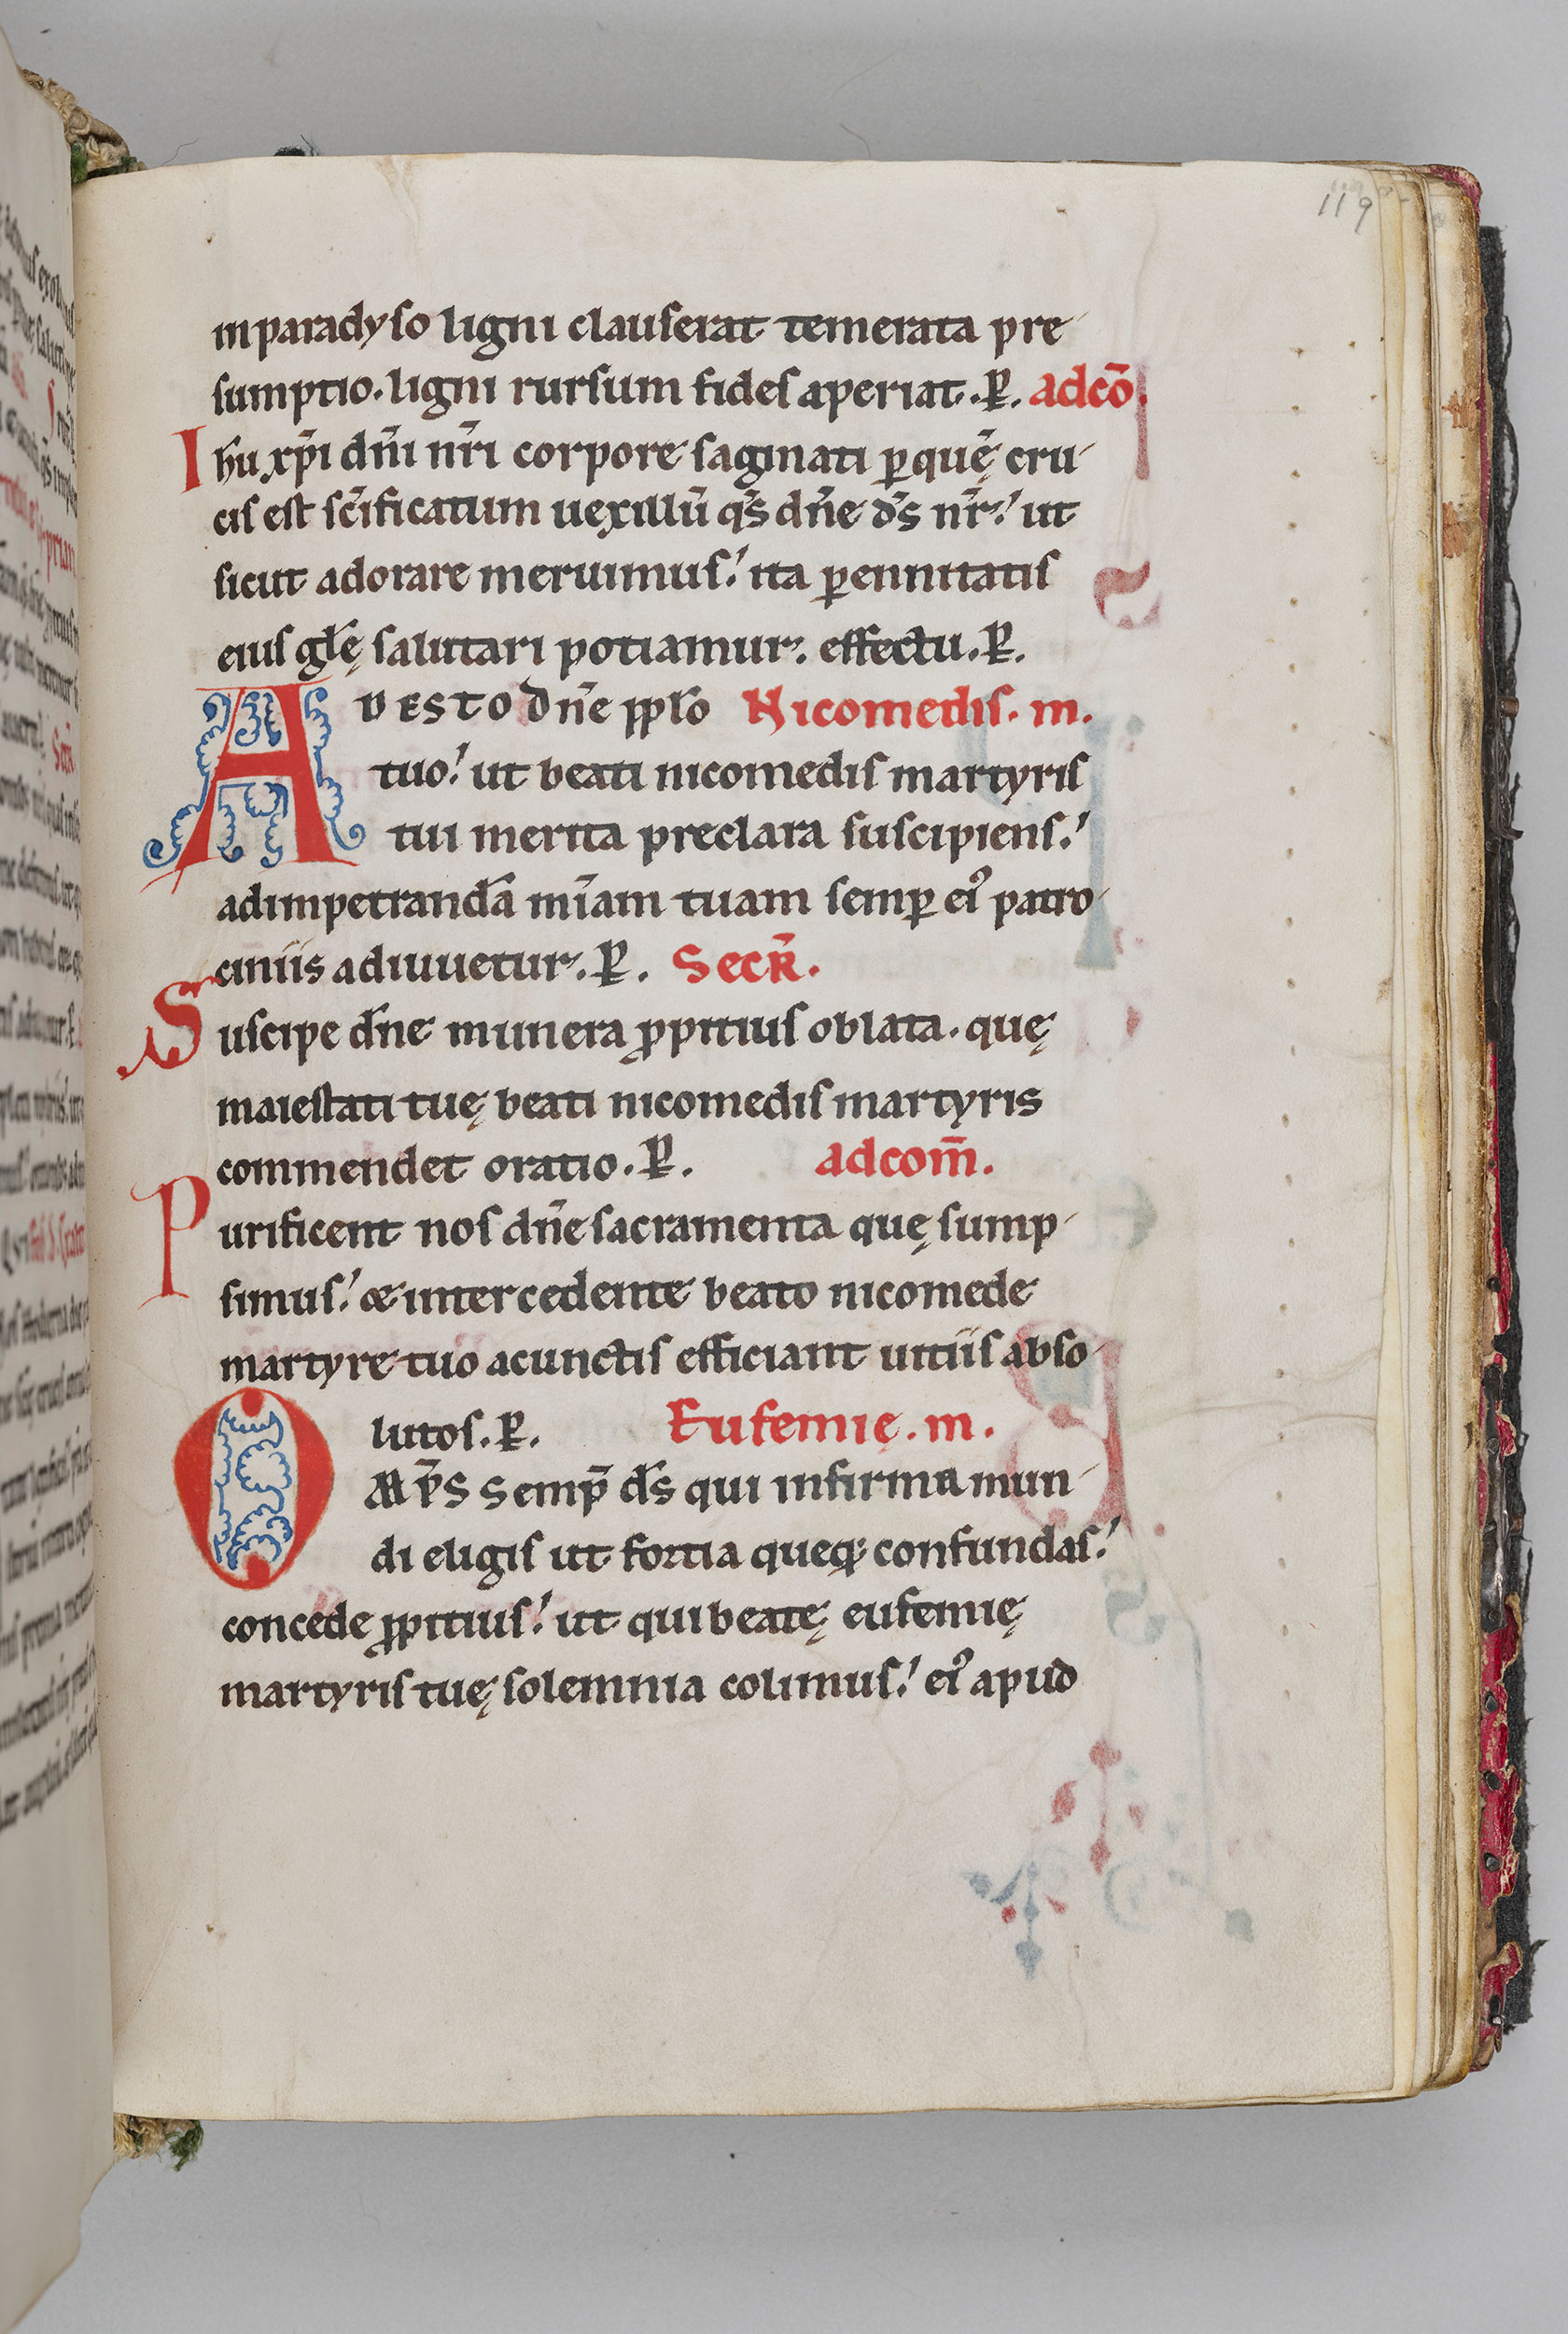 119
in paradyso ligni clauserat temerata pre
sumptio. ligni rursum fides aperiat. P̱. ad cō.
Ihū xp̄i dn̄i nr̄i corpore saginati ꝑ quę̄ cru
cis est sc̄ificatum uexillū qs̄ dn̄e ds̄ nr̄. ut
sicut adorare meruimus. ita ꝑennitatis
eius gl̄ę salutari potiamur. effectu. P̱.
ADESTO dn̄e pp̄lo Nicomedis. m.
tuo. ut beati nicomedis martyris
tui merita preclara suscipiens.
ad impetrandā mīam tuam semꝑ ei᷒ patro
ciniis adiuuetur. P̱. Secr̄.
Suscipe dn̄e munera ꝓpitius oblata. quę
maiestati tuę beati nicomedis martyris
commendet oratio. P̱. ad com̄.
Purificent nos dn̄e sacramenta quę sump
simus. & intercedente beato nicomede
martyre tuo a cunctis efficiant uitiis abso
lutos. P̱. Eufemię. m.
OMP̄S semp̄ ds̄ qui infirma mun
di eligis ut fortia queq; confundas.
concede ꝓpitius. ut qui beatę eufemię
martyris tuę solemnia colimus. ei᷒ apud